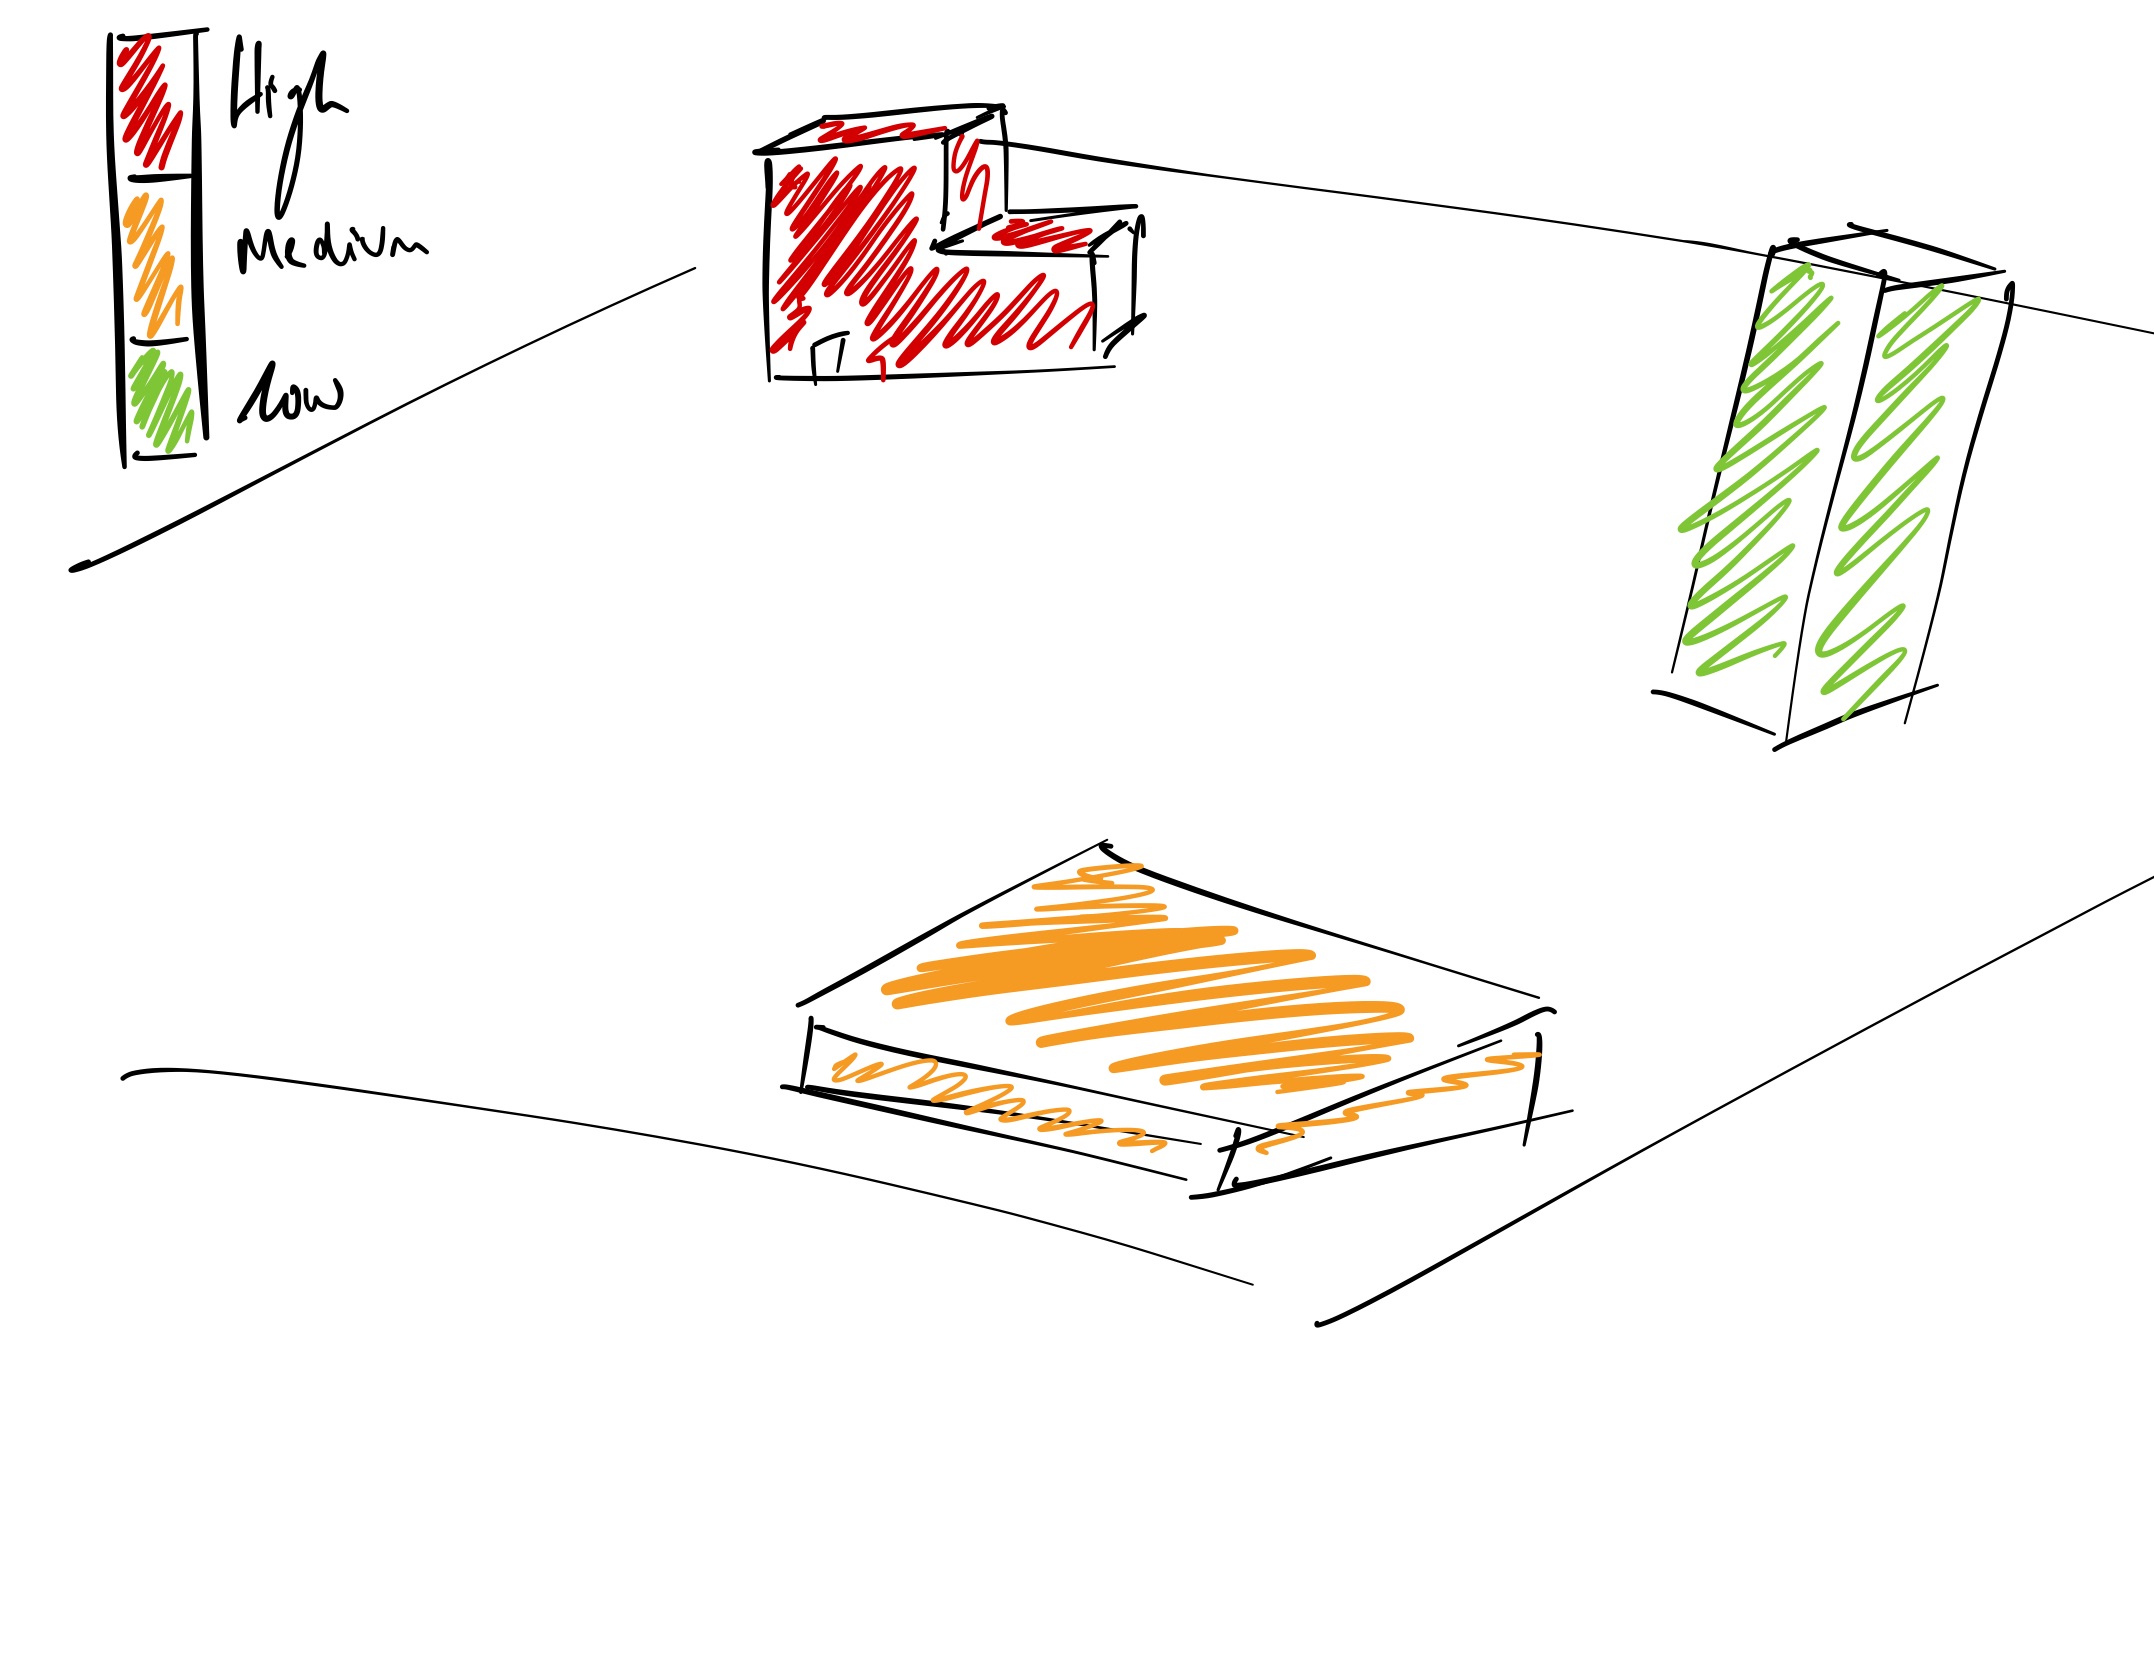 High
medium
low